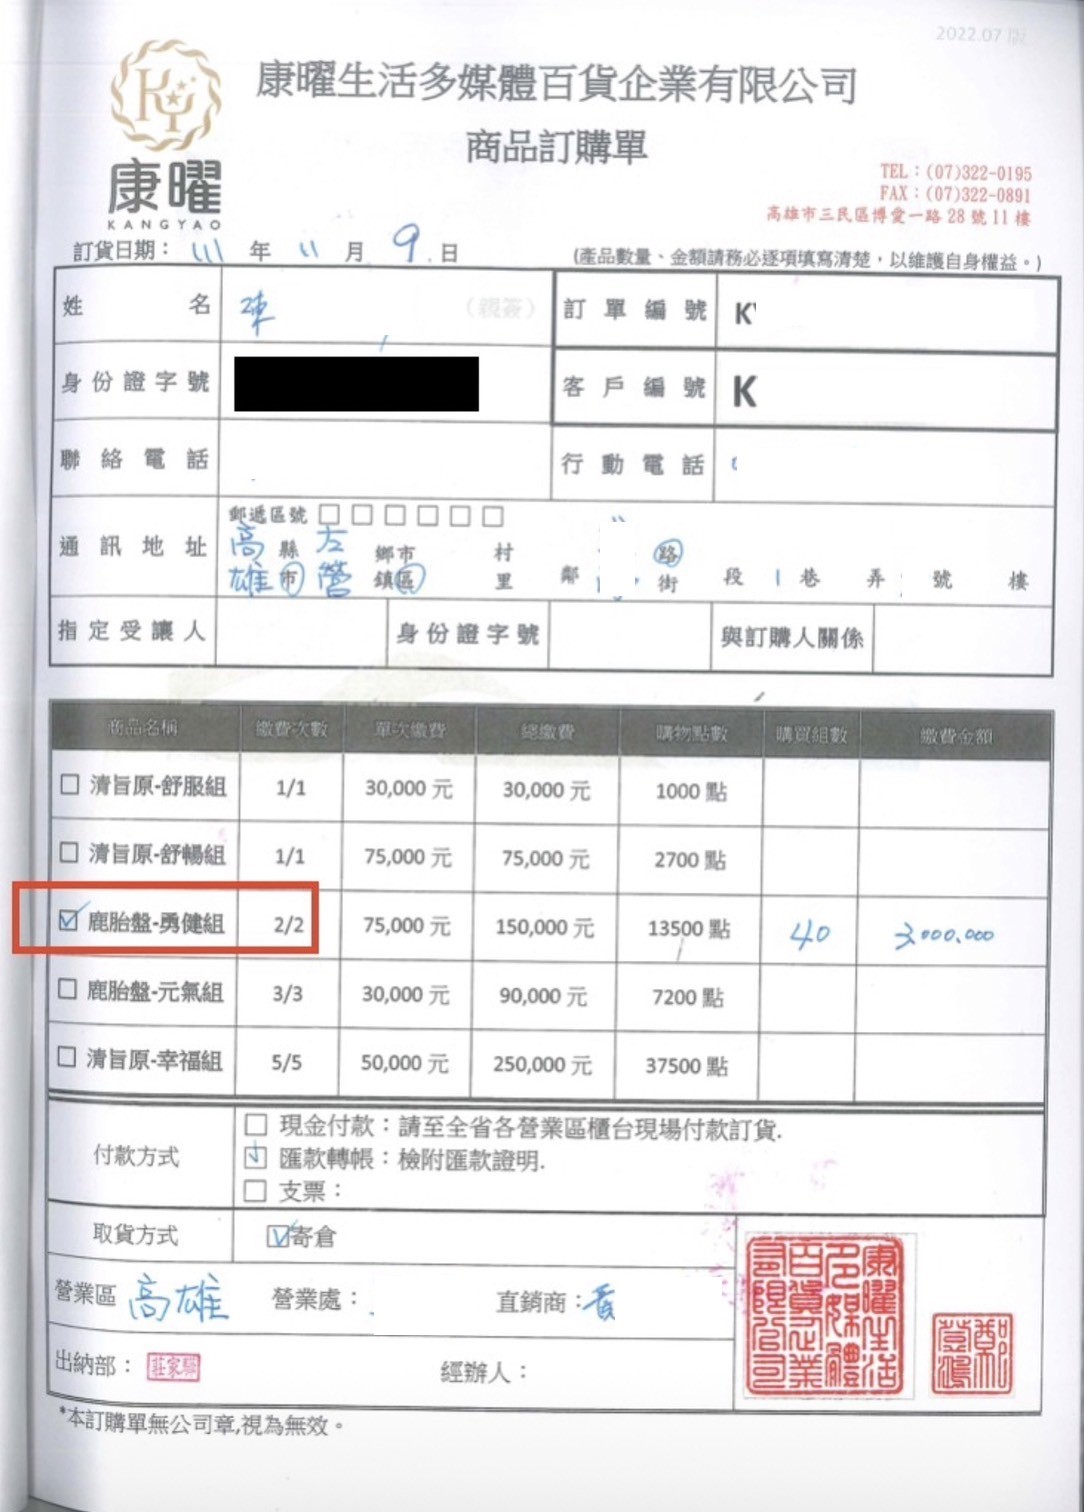 2022.07 版
康曜生活多媒體百貨企業有限公司
商品訂購單
KY
康曜
KANGYAO
TEL：(07)322-0195
FAX：(07)322-0891
高雄市三民區博愛一路 28 號 11 樓
訂貨日期： 111 年 11 月 9 日
(產品數量、金額請務必逐項填寫清楚，以維護自身權益。)
姓名 陳 (親簽) 訂單編號 K
身份證字號 客戶編號 K
聯絡電話 行動電話 0
通訊地址 郵遞區號 □□□□□□
高雄 縣市 左營 鄉市鎮區 村里 鄰 路街 段 1 巷 弄 號 樓
指定受讓人 身份證字號 與訂購人關係
商品名稱 繳費次數 單次繳費 總繳費 購物點數 購買組數 繳費金額
□ 清旨原-舒服組 1/1 30,000 元 30,000 元 1000 點
□ 清旨原-舒暢組 1/1 75,000 元 75,000 元 2700 點
☑ 鹿胎盤-勇健組 2/2 75,000 元 150,000 元 13500 點 40 3000.000
□ 鹿胎盤-元氣組 3/3 30,000 元 90,000 元 7200 點
□ 清旨原-幸福組 5/5 50,000 元 250,000 元 37500 點
付款方式
□ 現金付款：請至全省各營業區櫃台現場付款訂貨.
☑ 匯款轉帳：檢附匯款證明.
□ 支票：
取貨方式 ☑寄倉
營業區 高雄 營業處： 直銷商：黃
出納部： 經辦人：
康曜生活多媒體百貨企業有限公司
*本訂購單無公司章,視為無效。